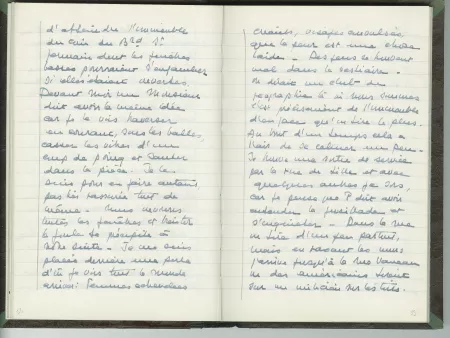 d'atteindre l'immeuble
du coin du Brd St
Germain dont les fenêtres
basses pourraient s'enjamber
si elles étaient ouvertes.
Devant moi un Monsieur
doit avoir la même idée
car je le vois traverser
en courant, sous les balles,
casser les vitres d'un
coup de poing et sauter
dans la pièce. Je le
suis pour en faire autant,
pas très rassurée tout de
même. Nous ouvrons
toutes les fenêtres et
la foule se précipite à
notre suite. Je me suis
placée derrière une porte
d'où je vois tout le monde
arriver: femmes
que la peur est une chose
laide. Des gens se trouvent
mal dans le vestiaire.
club de
géographie là où nous sommes
c'est précisément de l'immeuble
d'en face qu'on tire le plus.
Au bout d'un temps cela a
l'air de se calmer un peu.
Je trouve une sortie de service
par la rue de Lille et avec
quelques autres je sors,
car je pense que P. doit avoir
entendu la fusillade et
s'inquiéter. Dans la rue
on tire d'un peu partout,
mais en rasant les murs
j'arrive jusqu'à la rue
américains tirent
sur un milicien sur les toits.